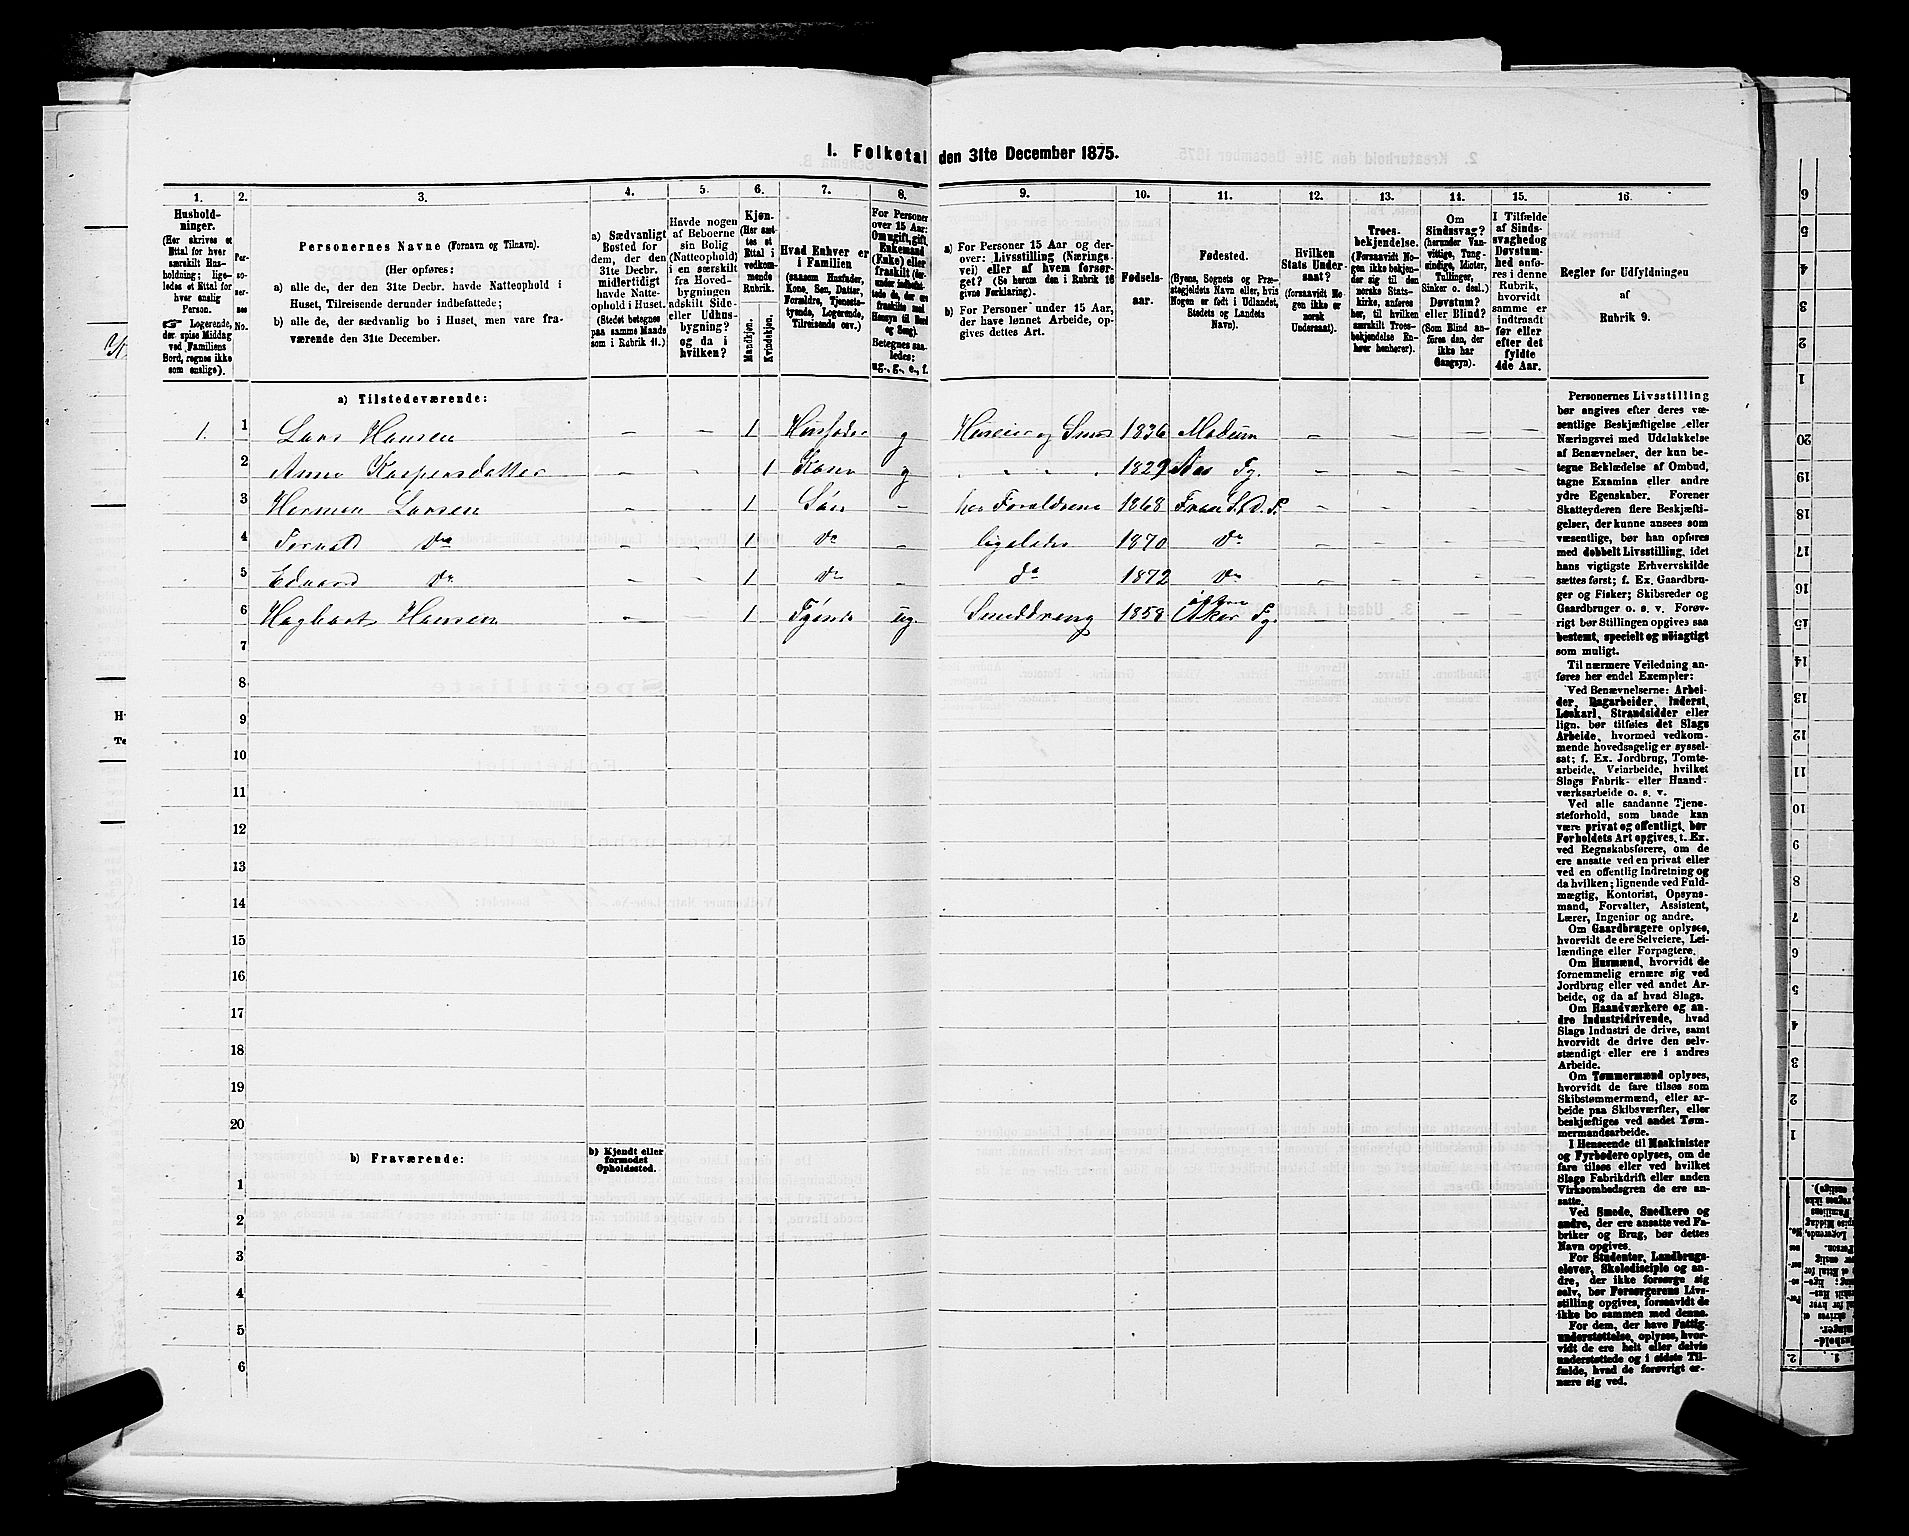 I. Folketal den 31te December 1875.
1. 2. 3. 4. 5. 6. 7. 8. 9. 10. 11. 12. 13. 14. 15. 16.
Husholdninger. (Her skrives et Ettal for hver særskilt Husholdning; ligeledes et Ettal for hver enslig Person. ☞ Logerende, der spise Middag ved Familiens Bord, regnes ikke som enslige).
Personernes No.
Personernes Navne (Fornavn og Tilnavn).
(Her opføres:
a) alle de, der den 31te Decbr. havde Natteophold i Huset, Tilreisende derunder indbefattede;
b) alle de, der sædvanlig bo i Huset, men vare fraværende den 31te December.
a) Sædvanligt Bosted for dem, der den 31te Decbr. midlertidigt havde Natteophold i Huset. (Stedet betegnes paa samme Maade som i Rubrik 11.)
Havde nogen af Beboerne sin Bolig (Natteophold) i en særskilt fra Hovedbygningen adskilt Side- eller Udhusbygning? og da i hvilken?
Kjøn. (Her sættes et Ettal i vedkommende Rubrik.
Mandkjøn. Kvindekjøn.
Hvad Enhver er i Familien (saasom Husfader, Kone, Søn, Datter, Forældre, Tjenestetyende, Logerende, Tilreisende osv.)
For Personer over 15 Aar: Om ugift, gift, Enkemand (Enke) eller fraskilt (derunder indbefattede de, der ere fraskilte med Hensyn til Bord og Seng). Betegnes saaledes: ug., g., e., f.
a) For Personer 15 Aar og derover: Livsstilling (Næringsvei) eller af hvem forsørget? (Se herom den i Rubrik 16 givne Forklaring).
b) For Personer under 15 Aar, der have lønnet Arbeide, opgives dettes Art.
Fødselsaar.
Fødested. (Byens, Sognets og Præstegjeldets Navn eller, hvis Nogen er født i Udlandet, Stedets og Landets Navn).
Hvilken Stats Undersaat? (forsaavidt Nogen ikke er norsk Undersaat).
Troesbekjendelse. (Forsaavidt Nogen ikke bekjender sig til den norske Statskirke, anføres her, til hvilken særskilt Troesbekjendelse Enhver henhører).
Om Sindssvag? (herunder Vanvittige, Tungsindige, Idioter, Tullinger, Sinker o. desl.) Døvstum? eller Blind? (Som Blind anføres den, der ikke har Gangsyn).
I Tilfælde af Sindssvaghed og Døvstumhed anføres i denne Rubrik, hvorvidt samme er indtraadt før eller efter det fyldte 4de Aar.
Regler for Udfyldningen af Rubrik 9.
a) Tilstedeværende:
1. 1 Lars Hansen – – 1 Husfader g Huseier og Smed 1836 Modum – – – –
2 Anne Kaspersdatter – – 1 Kone g " " " 1829 Aas Pg. – – – –
3 Herman Larsen – – 1 Søn – hos Forældrene 1868 – – – –
4 do – – 1 do – ligeledes 1870 do – – – –
5 Edvard do – – 1 do – do 1872 do – – – –
6 Hagbart Hansen – – 1 ug Smeddreng 1858 Aker Pg. – – – –
7
8
9
10
11
12
13
14
15
16
17
18
19
20
b) Fraværende: b) Kjendt eller formodet Opholdssted.
1
2
3
4
5
6
Personernes Livsstilling
bør angives efter deres væ-
sentlige Beskjæftigelse eller
Næringsvei med Udelukkelse
af Benævnelser, der kun be-
tegne Beklædelse af Ombud,
tagne Examina eller andre
ydre Egenskaber. Forener
Skatteyderen flere Beskjæfti-
gelser, der kunne ansees som
væsentlige, bør han opføres
med dobbelt Livsstilling, idet
hans vigtigste Erhvervskilde
sættes først; f. Ex. Gaardbru-
ger og Fisker; Skibsreder og
Gaardbruger o. s. v. Forøv-
rigt bør Stillingen opgives saa
bestemt, specielt og nøiagtigt
som muligt.
Til nærmere Veiledning an-
føres her endel Exempler:
Ved Benævnelserne: Arbei-
der, Dagarbeider, Inderst,
Løskarl, Strandsidder eller
lign. bør tilføies det Slags
Arbeide, hvormed vedkom-
mende hovedsagelig er syssel-
sat; f. Ex. Jordbrug, Tomte-
arbeide, Veiarbeide, hvilket
Slags Fabrik- eller Haand-
værksarbeide o. s. v.
Ved alle saadanne Tjene-
steforhold, som baade kan
være privat og offentligt, bør
Forholdets Art opgives, t. Ex.
ved Regnskabsførere, om de
ere ansatte ved en privat eller
ved en offentlig Indretning og
da hvilken; lignende ved Fuld-
mægtig, Kontorist, Opsyns-
mand, Forvalter, Assistent,
Lærer, Ingeniør og andre.
Om Gaardbrugere oplyses,
hvorvidt de ere Selveiere, Lei-
lændinge eller Forpagtere.
Om Husmænd, hvorvidt de
fornemmelig ernære sig ved
Jordbrug eller ved andet Ar-
beide, og da af hvad Slags.
Om Haandværkere og an-
dre Industridrivende, hvad
Slags Industri de drive, samt
hvorvidt de drive den selv-
stændigt eller ere i andres
Arbeide.
Om Tømmermænd oplyses,
hvorvidt de fare tilsøs som
Skibstømmermænd, eller ar-
beide paa Skibsværfter, eller
beskjæftiges ved andet Tøm-
mermandsarbeide.
I Henseende til Maskinister
og Fyrbødere oplyses, om de
fare tilsøs eller ved hvilket
Slags Fabrikdrift eller anden
Virksomhedsgren de ere an-
satte.
Ved Smede, Snedkere og
andre, der ere ansatte ved Fa-
briker og Brug, bør dettes
Navn opgives.
For Studenter, Landbrugs-
elever, Skoledisciple og an-
dre, der ikke forsørge sig
selv, bør Forsørgerens Livs-
stilling opgives, forsaavidt de
ikke bo sammen med denne.
For dem, der have Fattig-
understøttelse, oplyses, hvor-
vidt de ere helt eller delvis
understøttede og i sidste Til-
fælde, hvad de forøvrigt er-
nære sig ved.